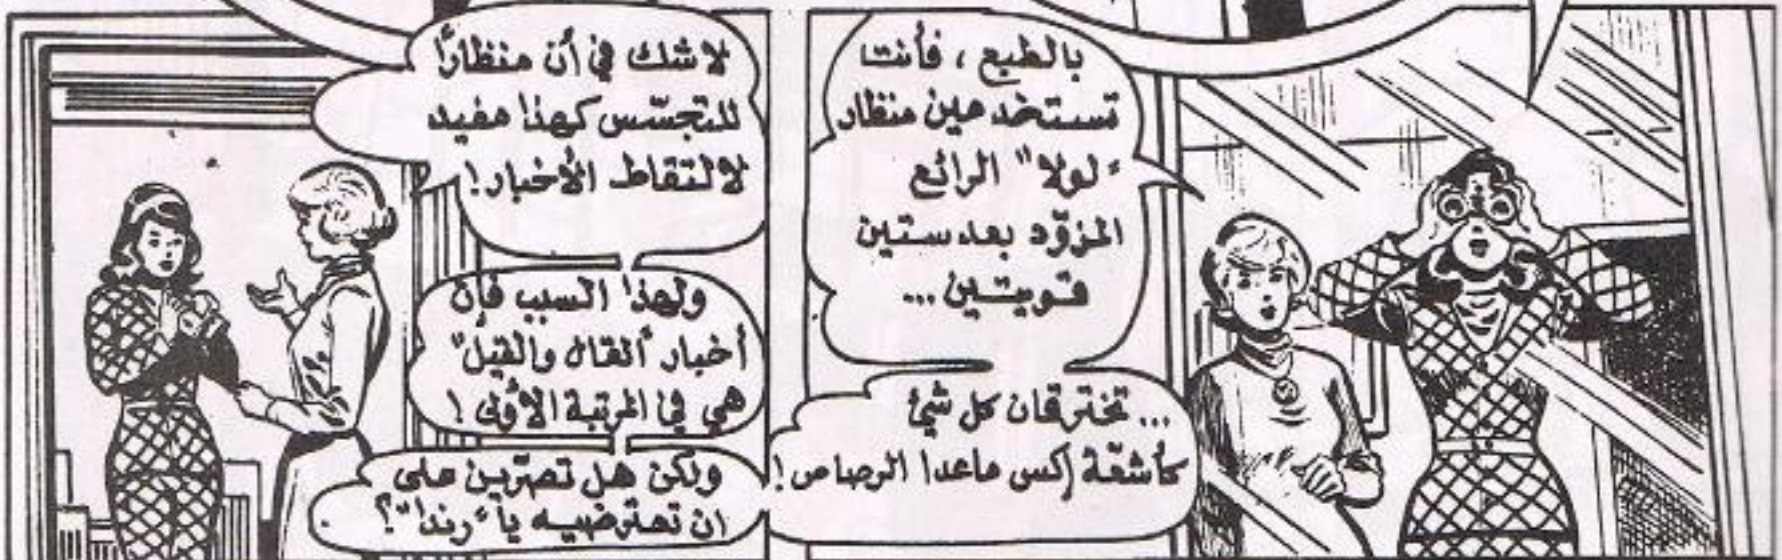 بالطبع ، فأنت
تستخدمين منظار
"لولا" الرائع
المزوّد بعدستين
قويتين ...
... تخترقان كل شيئ
كأشعّة إكس ماعدا الرصاص !
لا شك في أن منظارًا
للتجسّس كهذا مفيد
لالتقاط الأخبار !
ولهذا السبب فإن
أخبار "القال والقيل"
هي في المرتبة الأولى !
ولكن هل تصرّين على
ان تعترضيه يا "رندا" ؟